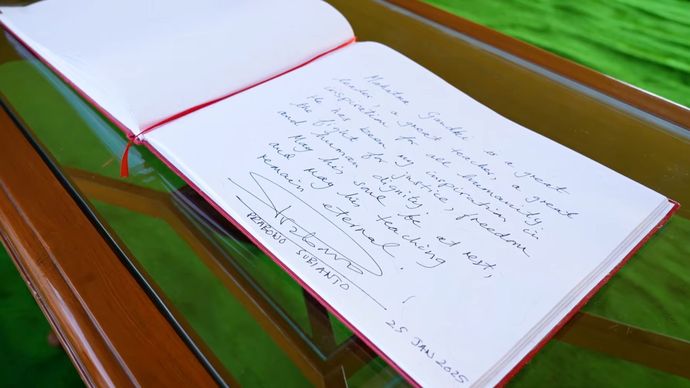 Mahatma Gandhi is a great
leader, a great teacher, a great
inspiration for all humanity.
He has been my inspiration in
the fight for justice, freedom
and human dignity.
May his soul be at rest,
and may his teaching
remain eternal!
Prabowo
PRABOWO SUBIANTO
25 JAN 2025